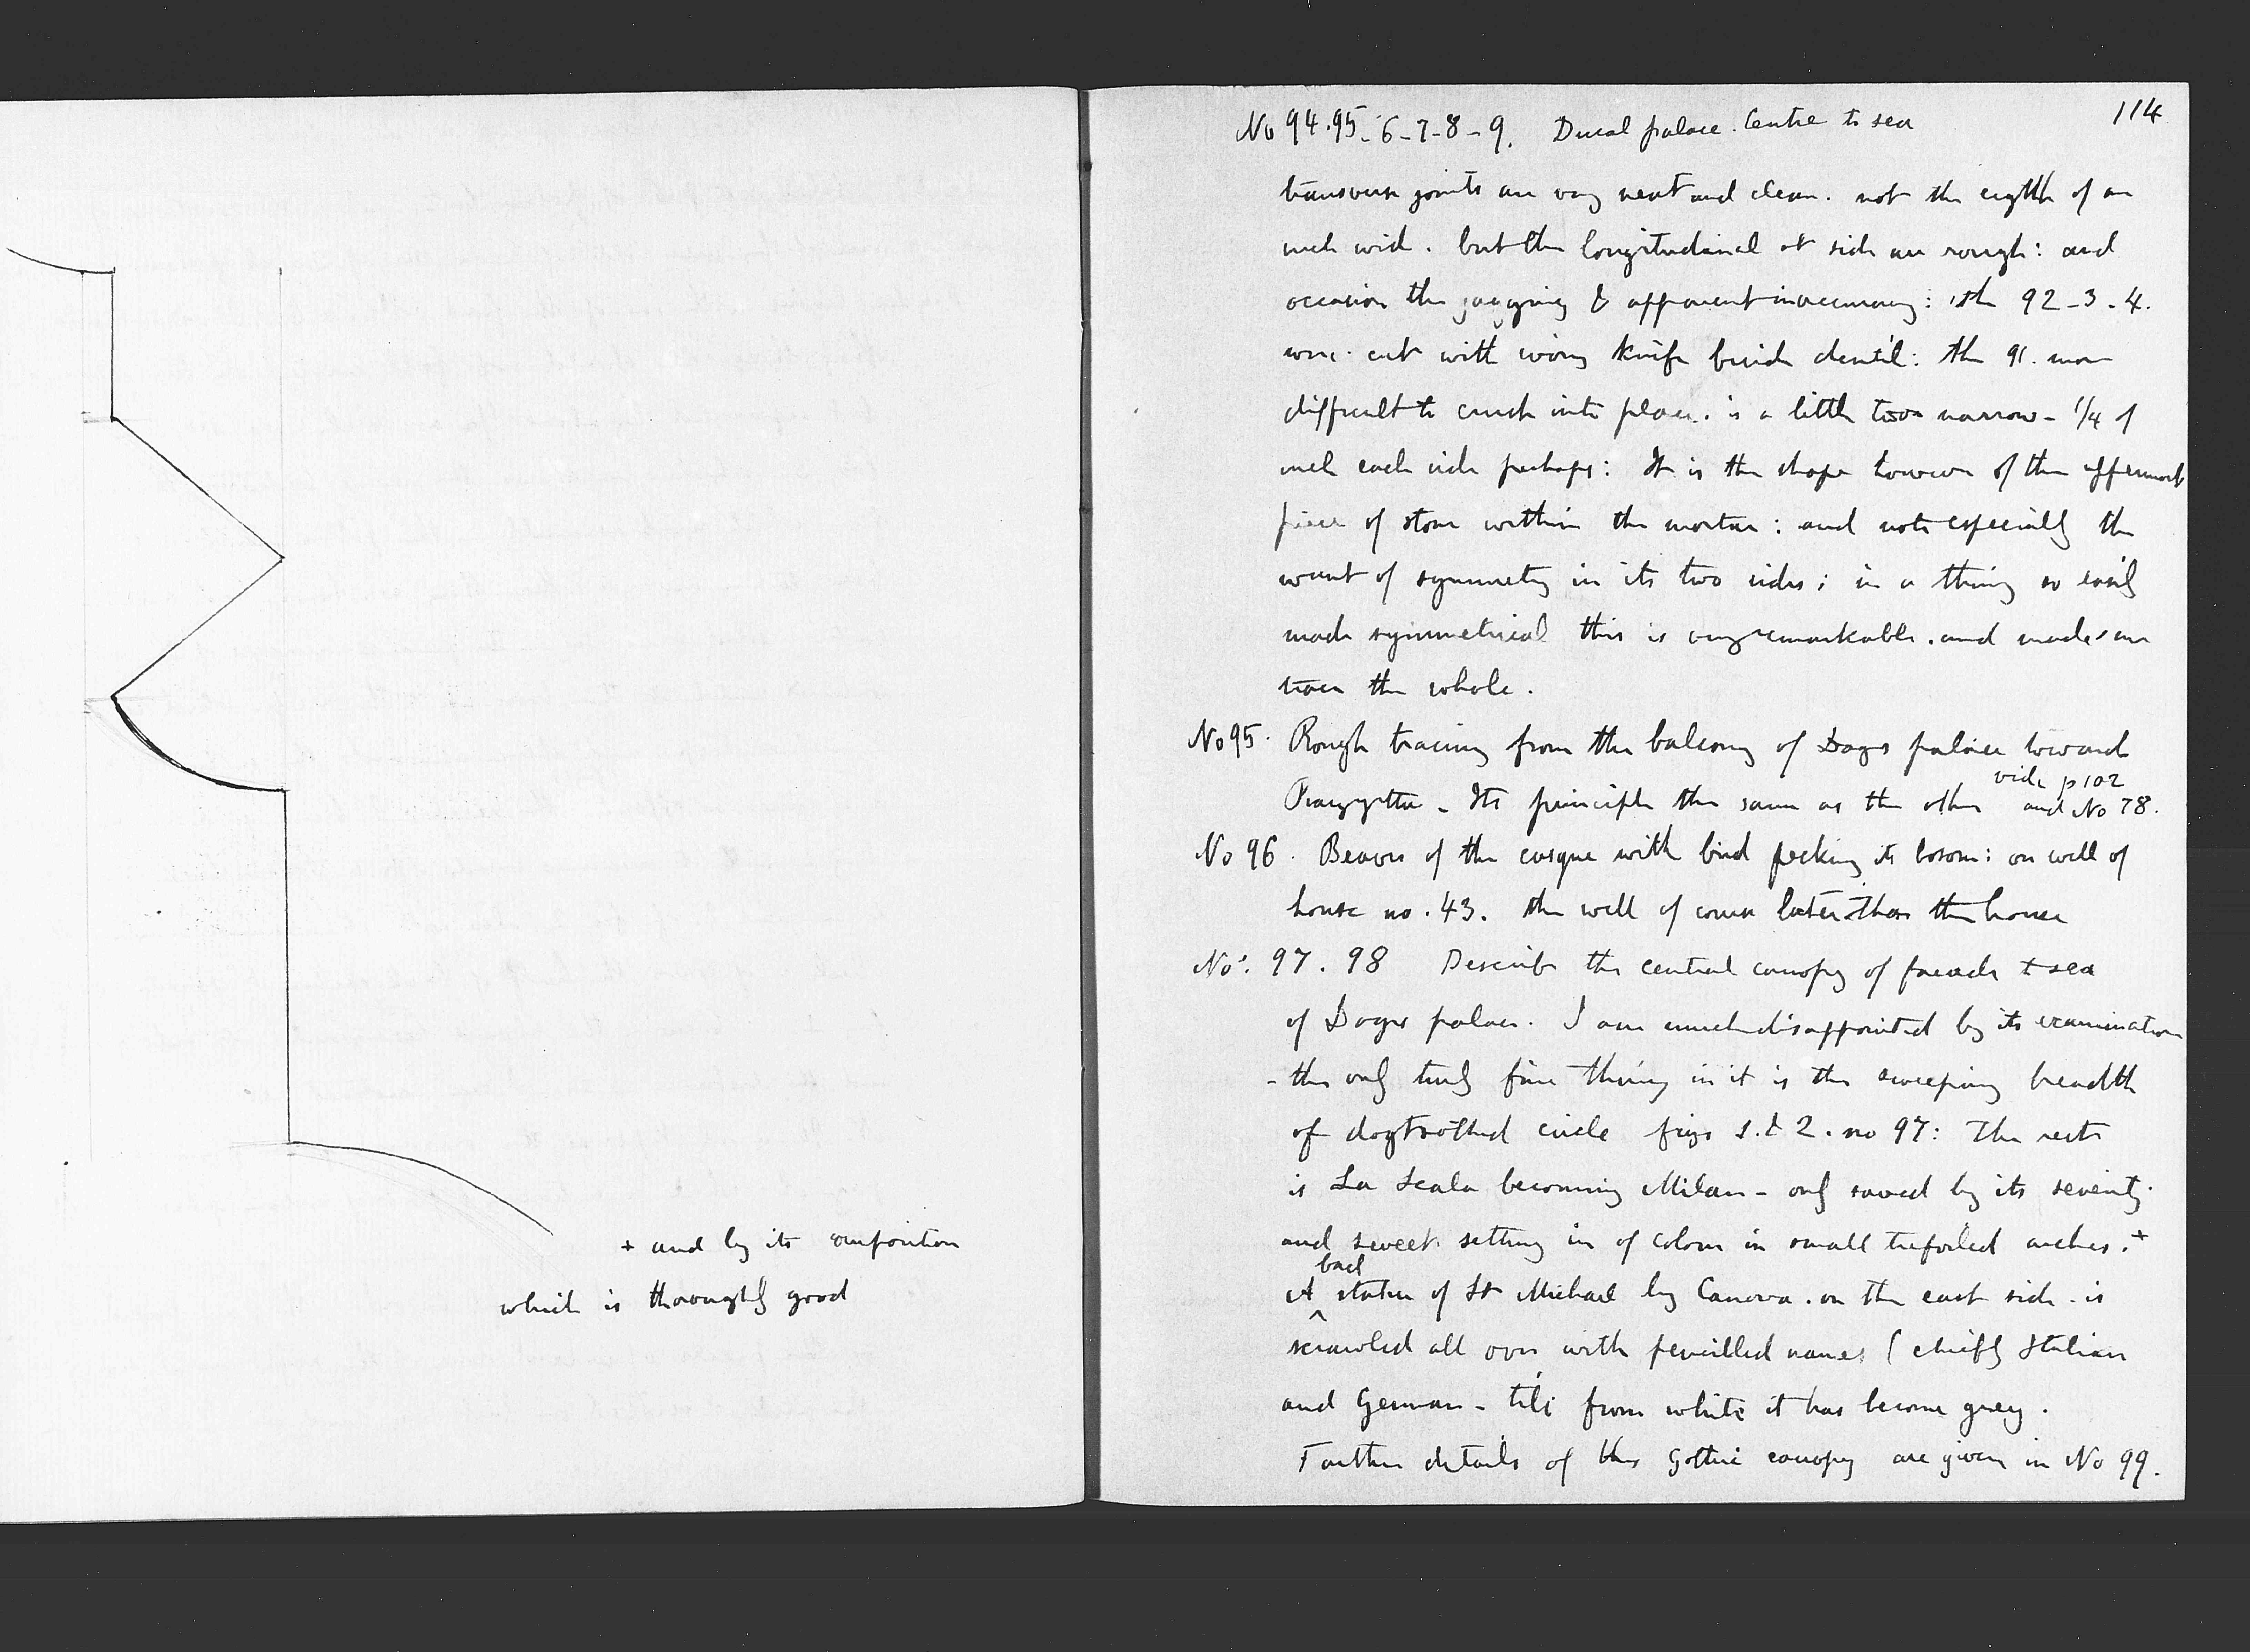 + and by its composition
which is thoroughly good
No 94.95-6-7-8-9. Ducal palace. Centre to sea
114
transverse joints are very neat and clean. not the eigth of an
inch wide. but the longitudinal at side are rough: and
occasion the jagging & apparent inaccuracy: the 92-3-4.
were cut with ivory knife beside dentil: the 91. more
difficult to crush into place. is a little too narrow - 1/4 of
inch each side perhaps: It is the shape however of the uppermost
piece of stone within the mortar: and note especially the
want of symmetry in its two sides; in a thing so easily
made symmetrical this is very remarkable. and made me
trace the whole.
No 95. Rough tracing from the balcony of Doges palace toward
Piazzetta - Its principle the same as the other vide p 102 and No 78.
No 96. Beaver of the casque with bird pecking its bosom: on well of
house no. 43. the well of course later than the house
No's. 97. 98 Describe the central canopy of facade to sea
of Doges palace. I am much disappointed by its examination
- the only truly fine thing in it is the sweeping breadth
of dogtoothed circle figs 1. & 2. no 97: The rest
is La Scala becoming Milan - only saved by its severity
and sweet setting in of colour in small trefoiled arches. +
A bad statue of St Michael by Canova. on the east side - is
scrawled all over with pencilled names ( chiefly Italian
and German - till from white it has become grey.
Farther details of this Gothic canopy are given in No 99.